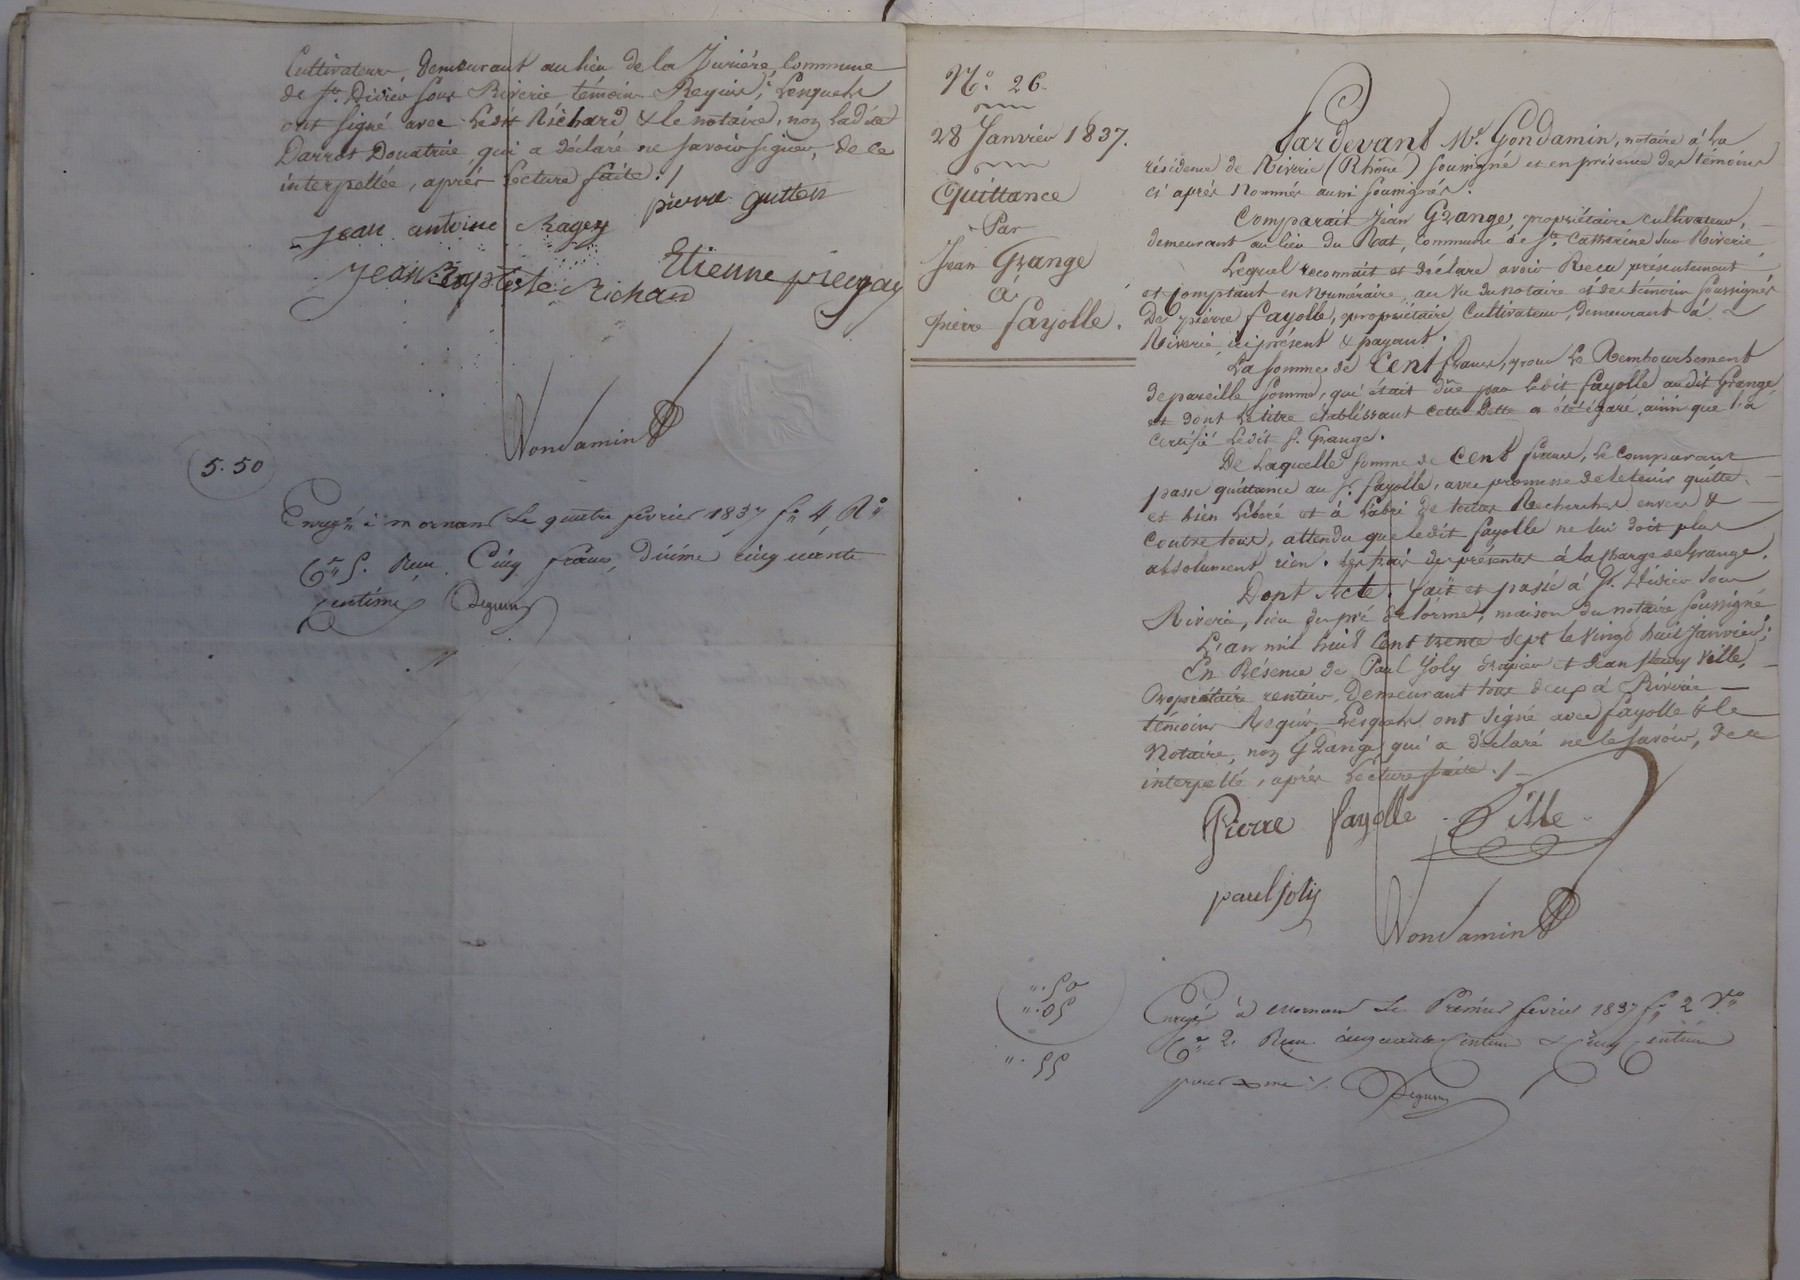 Cultivateur, demeurant au lieu de la Jurière, Commune
de St. Didier sous Riverie témoins Requis; Lesquels
ont signé avec Ledit Richard & le notaire, non ladite
Darros Donatrice, qui a déclaré ne savoir signer, de ce
interpellée, après Lecture faite ./
pierre guttin
jean antoine Ragey
Etienne pieegay
Jean Baptiste Richard
Gondamin
5.50
Enregté à mornant Le quatre fevrier 1837 fo 4 Ro
Ce 5. Reçu Cinq francs, dixième cinquante
centimes Seguin
No. 26.
28 Janvier 1837.
Quittance
Par
Jean Grange
à
pierre fayolle.
Pardevant Me. Gondamin, notaire à la
résidence de Riverie (Rhône) soussigné et en présence des témoins
ci après Nommés aussi soussignés.
Comparait Jean Grange, propriétaire cultivateur,
demeurant au lieu du Roat, Commune de Ste. Catherine sur Riverie
Lequel reconnait et déclare avoir Reçu présentement
et comptant en Numéraire, au vu du notaire et des témoins soussignés
De pierre fayolle, propriétaire Cultivateur, demeurant à
Riverie, ici présent & payant.
La somme de Cent francs, pour le Remboursement
de pareille somme, qui était dûe par Ledit fayolle audit Grange
et dont Le titre établissant cette Dette a été égaré, ainsi que l'a
certifié Ledit Sr. Grange.
De Laquelle somme de Cent francs, Le Comparant
passe quittance au Sr. fayolle, avec promesse de le tenir quitte
et bien Libéré et à l'abri de toutes Recherches envers &
contre tous, attendu que ledit fayolle ne lui doit plus
absolument rien. Les frais des présentes à la charge de Grange.
Dont Acte. fait et passé à St. Didier sous
Riverie, lieu du pré de l'orme, maison du notaire soussigné
L'an mil huit Cent trente sept le vingt huit Janvier;
En Présence de Paul Joly drapier et Jean fleury Ville,
Propriétaire rentier, demeurant tous deux à Riverie
témoins Requis, Lesquels ont signé avec fayolle & le
Notaire, non Grange qui a déclaré ne le savoir, de ce
interpellé, après Lecture faite ./
Pierre fayolle Ville
paul joly
Gondamin
".50
".05
".55
Enregé à Mornant Le Premier fevrier 1837 fo 2 Vo
Ce 2. Reçu cinquante Centimes & Cinq Centimes
pour xme ./. Seguin